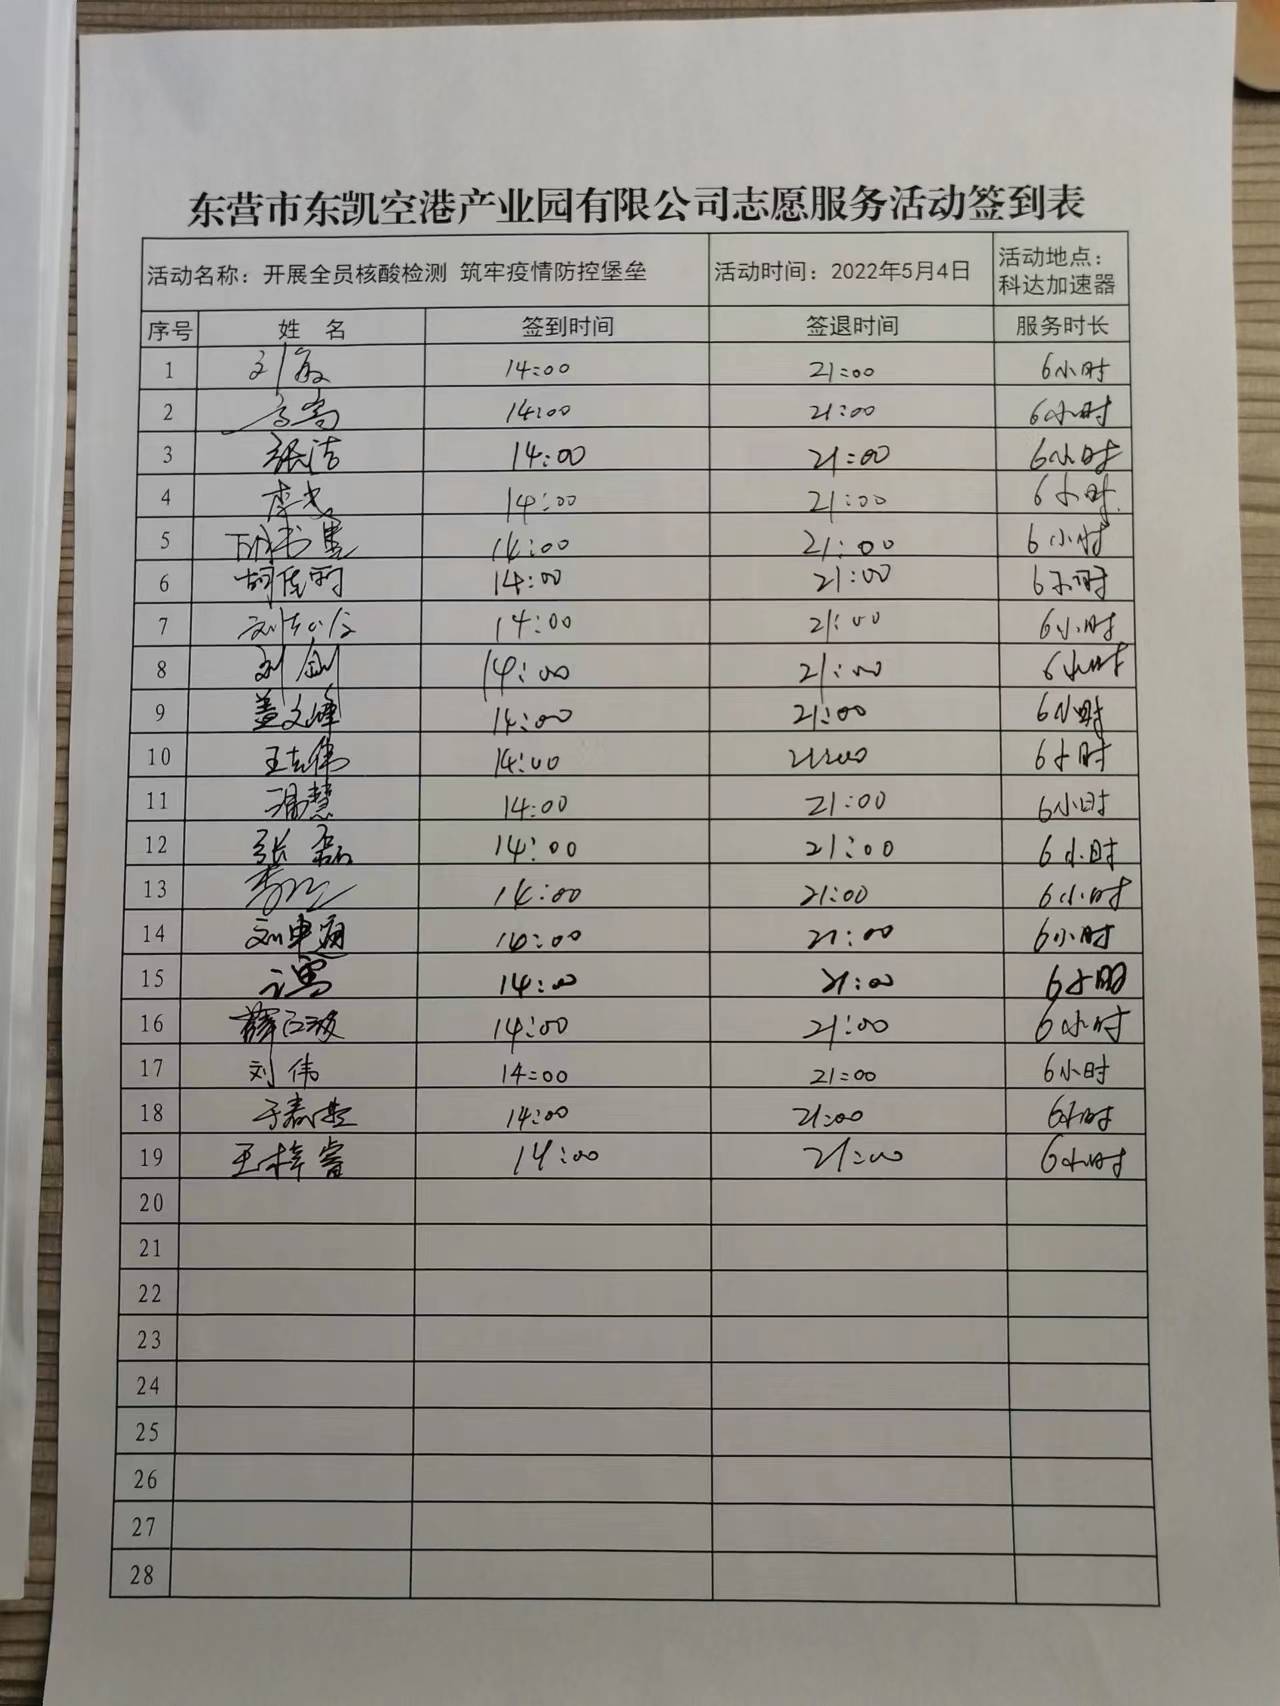 东营市东凯空港产业园有限公司志愿服务活动签到表
活动名称：开展全员核酸检测 筑牢疫情防控堡垒 活动时间：2022年5月4日 活动地点：科达加速器
序号 姓 名 签到时间 签退时间 服务时长
1 刘 14:00 21:00 6小时
2 14:00 21:00 6小时
3 张洁 14:00 21:00 6小时
4 李 14:00 21:00 6小时
5 14:00 21:00 6小时
6 胡佳雨 14:00 21:00 6小时
7 刘 14:00 21:00 6小时
8 刘剑 14:00 21:00 6小时
9 盖文峰 14:00 21:00 6小时
10 王志伟 14:00 21:00 6小时
11 冯慧 14:00 21:00 6小时
12 张磊 14:00 21:00 6小时
13 李 14:00 21:00 6小时
14 刘申通 14:00 21:00 6小时
15 14:00 21:00 6小时
16 薛江波 14:00 21:00 6小时
17 刘伟 14:00 21:00 6小时
18 于 14:00 21:00 6小时
19 王梓睿 14:00 21:00 6小时
20
21
22
23
24
25
26
27
28